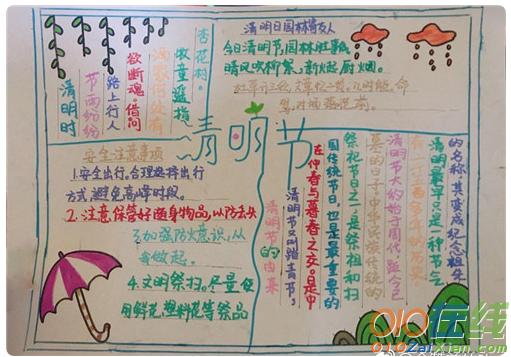 清明时
节雨纷纷
路上行人
欲断魂。借问
酒家何处有
牧童遥指
杏花村。
清明日园林寄友人
今日清明节,园林胜事偏
晴风吹柳絮,新火起厨烟。
清明节
安全注意事项
1.安全出行,合理选择出行
方式,避免高峰时段。
2.注意保管好随身物品,以防丢失
3.加强防火意识,从
我做起。
4.文明祭扫。尽量使
用鲜花,塑料花等祭品
清明节的由来
清明节又叫踏青节,
在仲春与暮春之交。是中
国传统节日,也是最重要的
祭祀节日之一,是祭祖和扫
墓的日子。中华民族传统的
清明节大约始于周代,距今已
有二千五百多年的历史。
清明最早只是一种节气
的名称,其变成纪念祖先
010在线
010zaixian.com